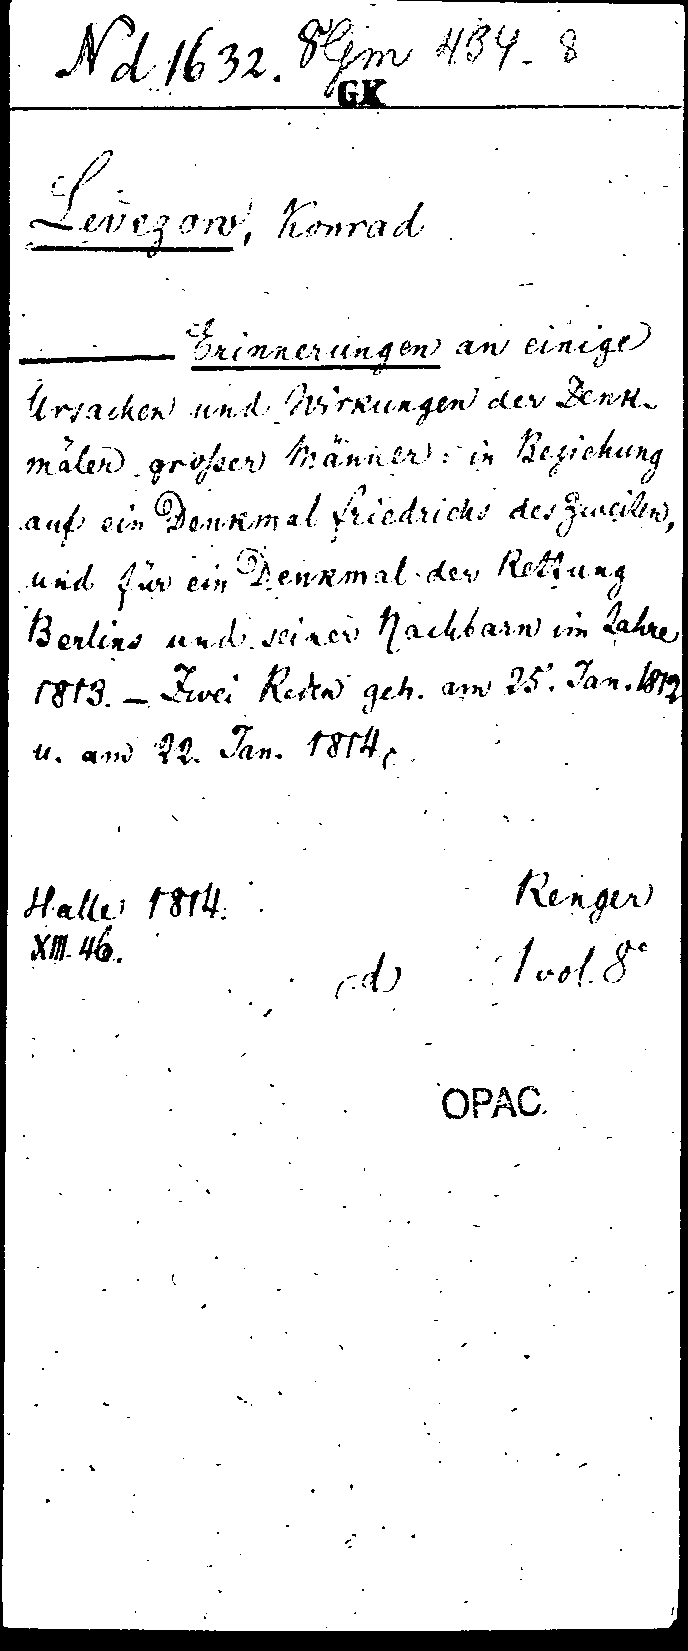 Nd 1632. 8° Gm 434-8
GK
Levezow, Konrad
Erinnerungen an einige
Ursachen und Wirkungen der Denk-
mäler großer Männer: in Beziehung
auf ein Denkmal Friedrichs des Zweiten,
und für ein Denkmal der Rettung
Berlins und seiner Nachbarn im Jahre
1813. - Zwei Reden geh. am 25. Jan. 1812
u. am 22. Jan. 1814.
Halle 1814. Renger
XIII. 46.
d 1 vol. 8°
OPAC